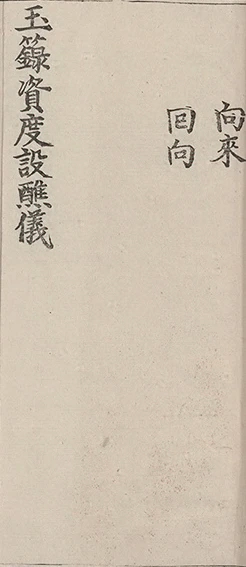 向來
回向
玉籙資度設醮儀